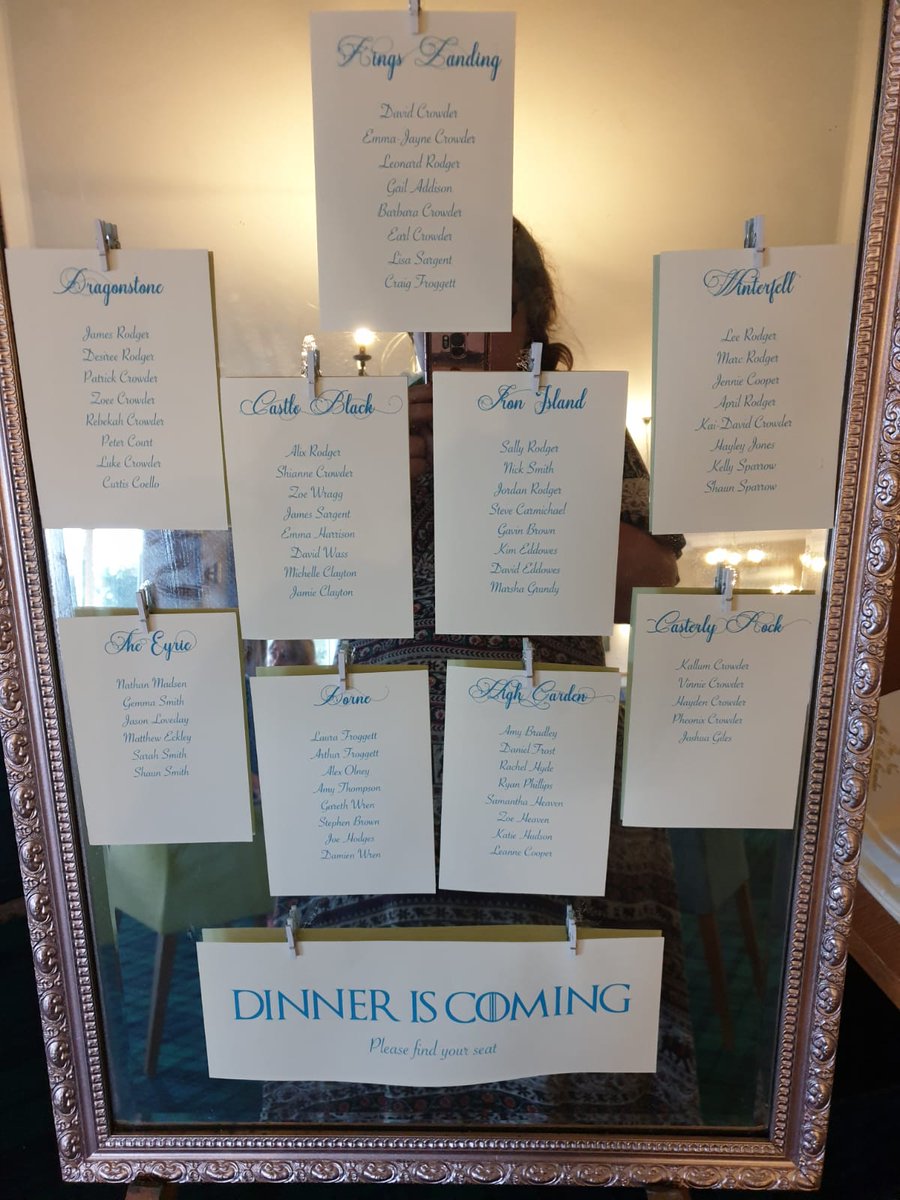 Kings Landing
David Crowder
Emma-Jayne Crowder
Leonard Rodger
Gail Addison
Barbara Crowder
Earl Crowder
Lisa Sargent
Craig Froggett
Dragonstone
James Rodger
Desiree Rodger
Patrick Crowder
Zoee Crowder
Rebekah Crowder
Peter Court
Luke Crowder
Curtis Coello
Castle Black
Alix Rodger
Shianne Crowder
Zoe Wragg
James Sargent
Emma Harrison
David Wass
Michelle Clayton
Jamie Clayton
Iron Island
Sally Rodger
Nick Smith
Jordan Rodger
Steve Carmichael
Gavin Brown
Kim Eddowes
David Eddowes
Marsha Grundy
Winterfell
Lee Rodger
Marc Rodger
Jennie Cooper
April Rodger
Kai-David Crowder
Hayley Jones
Kelly Sparrow
Shaun Sparrow
The Eyrie
Nathan Madsen
Gemma Smith
Jason Loveday
Matthew Eckley
Sarah Smith
Shaun Smith
Dorne
Laura Froggett
Arthur Froggett
Alex Olney
Amy Thompson
Gareth Wren
Stephen Brown
Joe Hodges
Damien Wren
High Garden
Amy Bradley
Daniel Frost
Rachel Hyde
Ryan Phillips
Samantha Heaven
Zoe Heaven
Katie Hudson
Leanne Cooper
Casterly Rock
Kallum Crowder
Vinnie Crowder
Hayden Crowder
Pheonix Crowder
Joshua Giles
DINNER IS COMING
Please find your seat